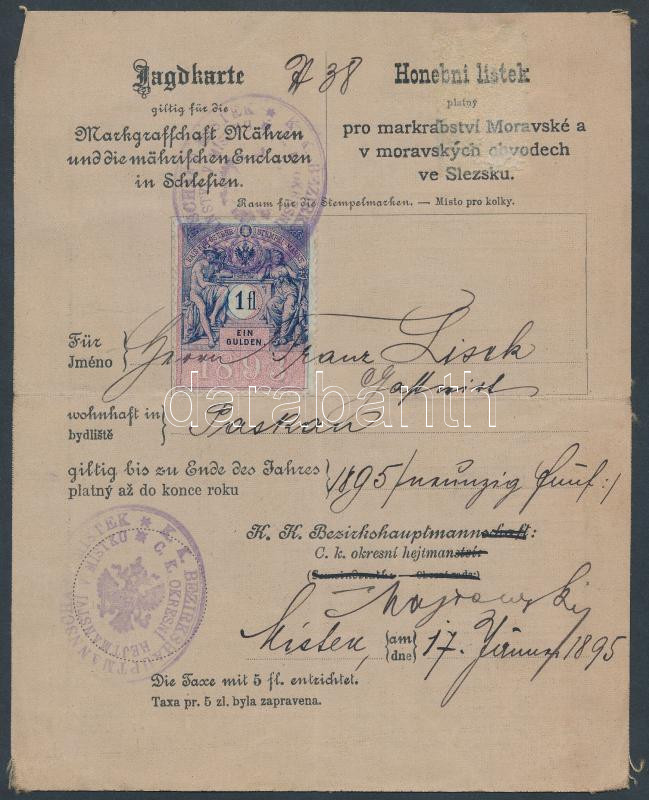 Jagdkarte
№ 38
giltig für die
Markgrafschaft Mähren
und die mährischen Enclaven
in Schlesien.
Honební lístek
platný
pro markrabství Moravské a
v moravských obvodech
ve Slezsku.
Raum für die Stempelmarken. — Místo pro kolky.
KAIS. KÖN. ÖSTERR. STEMPEL MARKE
1 fl
EIN
GULDEN
189
Für
Jméno
Herrn Franz Lisek
Gastwirt
wohnhaft in
bydliště
Paskau
giltig bis zu Ende des Jahres
platný až do konce roku
1895 /neunzig fünf:/
K. K. Bezirkshauptmannschaft:
C. k. okresní hejtmanství:
K. K. BEZIRKSHAUPTMANNSCHAFT MISTEK
C. K. OKRESNÍ HEJTMANSTVÍ V MÍSTKU
Mistek,
am
dne
17. Jänner 1895
Die Taxe mit 5 fl. entrichtet.
Taxa pr. 5 zl. byla zapravena.
darabanth